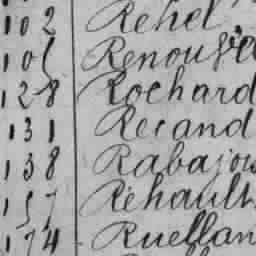 102 Rehel
105 Renouv
128 Rochard
131 Recand
138 Rabajou
157 Rehault
174 Ruellan